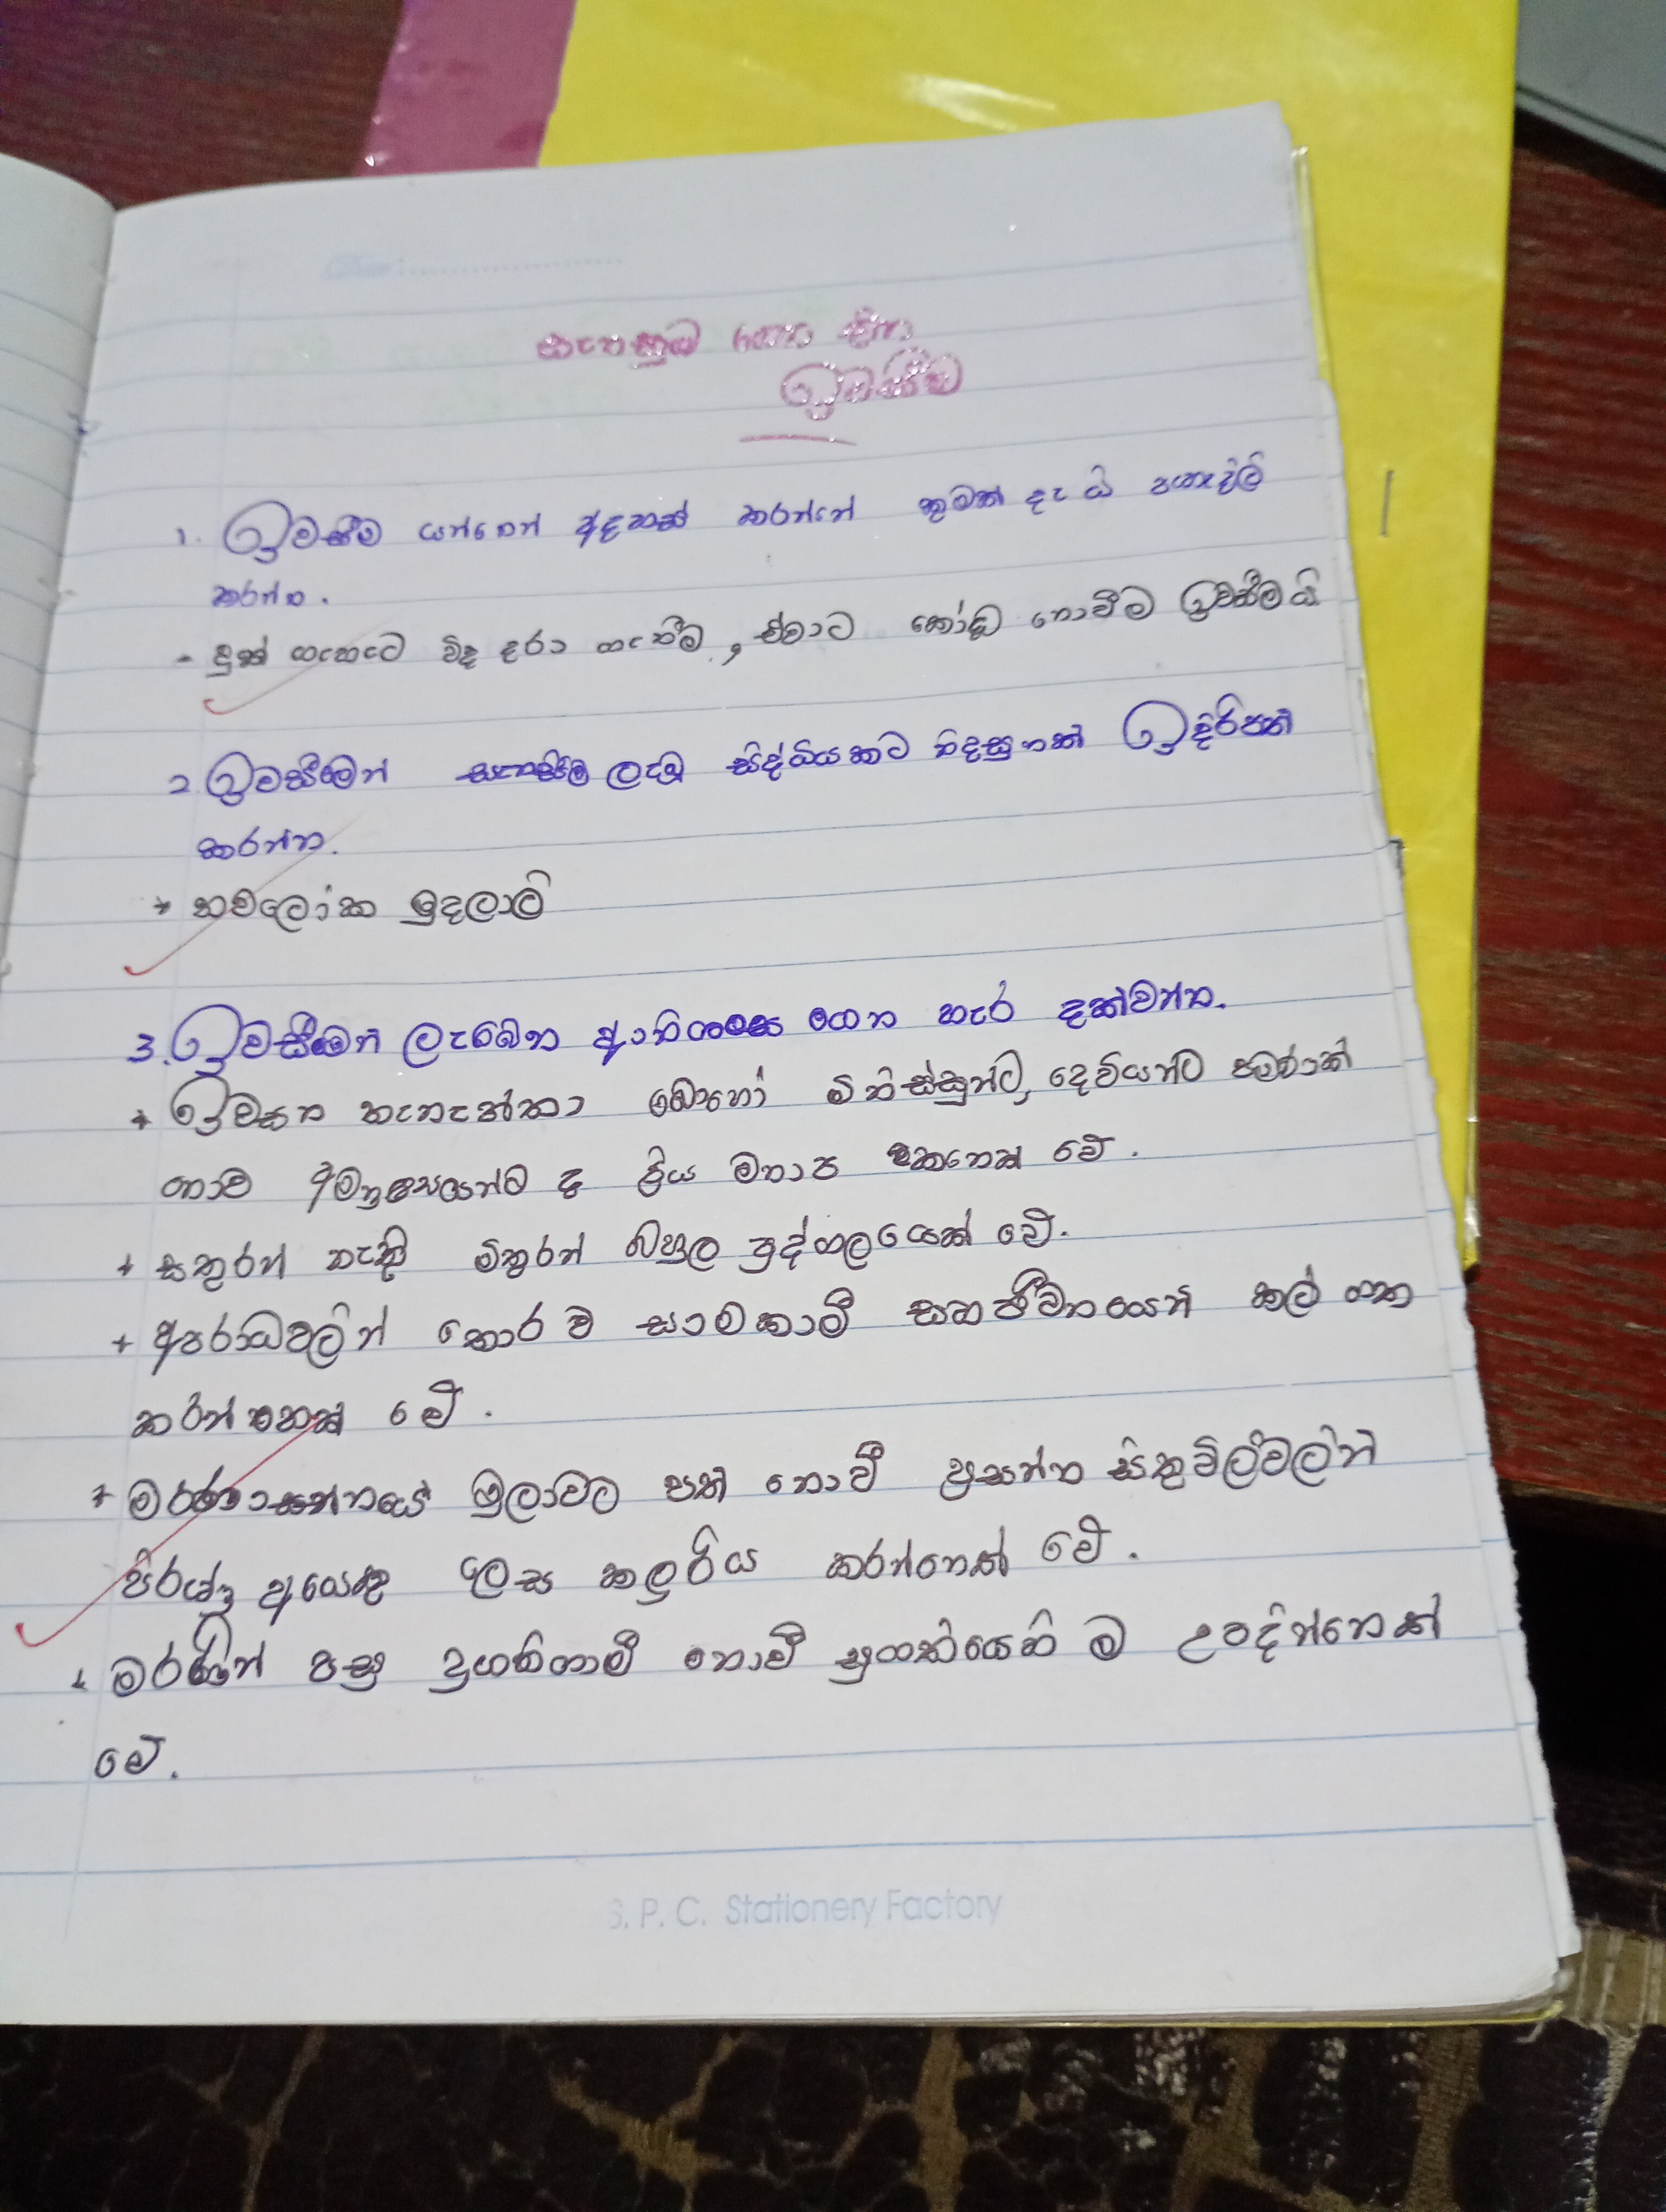 සැනසුම ගෙන දෙන
ඉවසීම
1. ඉවසීම යන්නෙන් අදහස් කරන්නේ කුමක් දැ යි පහැදිලි
කරන්න.
- දුක් ගැහැට විඳ දරා ගැනීම, ඒවාට කෝප නොවීම ඉවසීම යි
2. ඉවසීමෙන් සැනසීම ලැබූ සිද්ධියකට නිදසුනක් ඉදිරිපත්
කරන්න.
→ නවලෝක මුදලාලි
3. ඉවසීමෙන් ලැබෙන ආනිශංස ගෙන හැර දක්වන්න.
+ ඉවසන තැනැත්තා බොහෝ මිනිස්සුන්ට, දෙවියන්ට පමණක්
නොව අමනුෂ්‍යයන්ට ද ප්‍රිය මනාප එකනෙක් වේ.
+ සතුරන් නැති මිතුරන් බහුල පුද්ගලයෙක් වේ.
+ අපරාධවලින් තොර ව සාමකාමී සහජීවනයෙන් කල් ගත
කරන්නෙක් වේ.
+ මරණාසන්නයේ මුලාවට පත් නොවී ප්‍රසන්න සිතුවිල්වලින්
පිරුණු අයෙකු ලෙස කලුරිය කරන්නෙක් වේ.
+ මරණින් පසු දුගතිගාමී නොවී සුගතියෙහි ම උපදින්නෙක්
වේ.
S. P. C. Stationery Factory